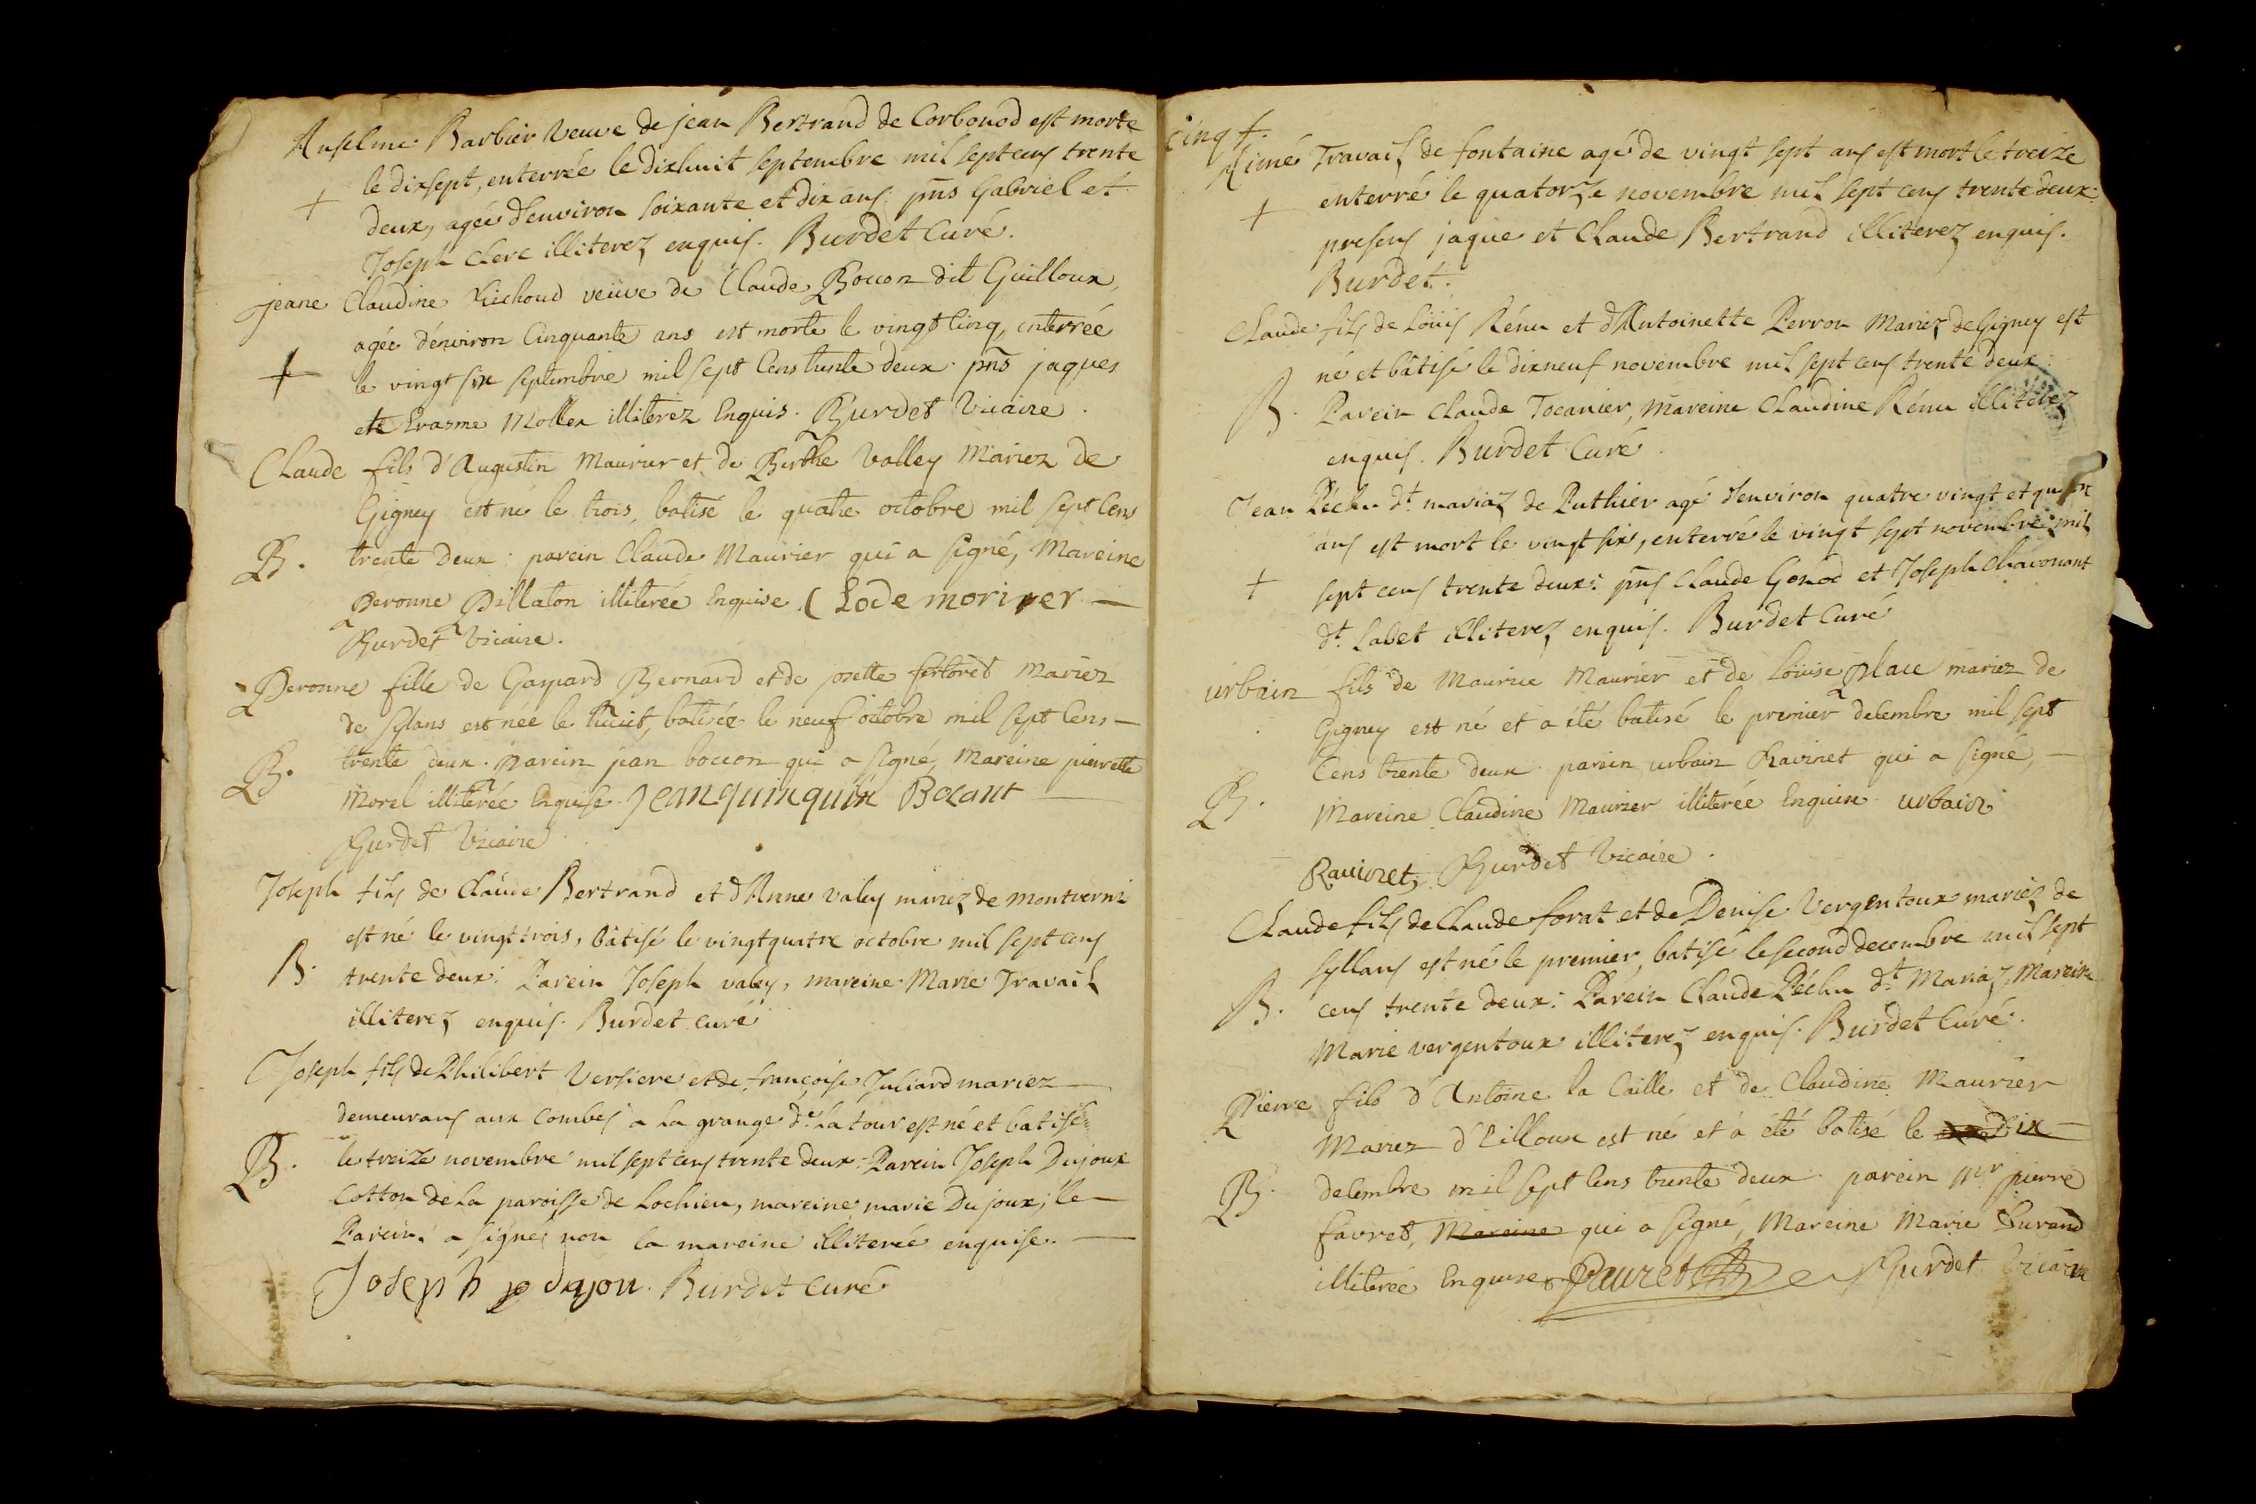 Anselme Barbier veuve de jean Bertrand de Corbonod est morte
le dixsept, enterrée le dixhuit septembre mil sept cens trente
+
deux, agée d'environ soixante et dix ans: pñs Gabriel et
Joseph Clerc illiterez enquis. Burdet Curé.
jeane Claudine Richoud veüve de Claude Bocon dit Guilloux,
agée d'environ Cinquante ans est morte le vingt Cinq, enterrée
+
le vingt six septembre mil sept Cens trente deux. pñs jaques
et Erasme Mollex illiterez Enquis. Burdet Vicaire.
Claude fils d'Augustin Maurier et de Berthe Valley Mariez de
Gigney est né le trois, batisé le quatre octobre mil sept Cens
B.
trente deux: parein Claude Maurier qui a signé, Mareine
Peronne Pillaton illiterée Enquise. (Lode morirer —
Burdet Vicaire.
Peronne fille de Gaspard Bernard et de josette fertoret Mariez
de sylans est née le huit, batisée le neuf octobre mil sept Cens —
B.
trente deux. parein jean bocon qui a signé, Mareine pierrette
Morel illiterée Enquise. jean quinquin Bocant —
Burdet Vicaire.
Joseph fils de Claude Bertrand et d'Anne valey mariez de montverni
est né le vingt trois, bâtisé le vingtquatre octobre mil sept cens
B.
trente deux: Parein Joseph valey, mareine Marie Travail
illiterez enquis. Burdet curé
Joseph fils de Philibert Versiere et de françoise Juliard mariez —
demeurans aux Combes a la grange de La tour est né et batisé
B.
le treize novembre mil sept cens trente deux: Parein Joseph Dujoux
Cotton de La paroisse de Lochieu, mareine marie Dujoux; le —
Parein a signé, non la mareine illiterée enquise. —
Joseph dujou. Burdet Curé
cinq f.
Aimé Travail de fontaine agé de vingt sept ans est mort le treize
+
enterré le quatorze novembre mil sept cens trente deux:
presens jaque et Claude Bertrand illiterez enquis.
Burdet.
Claude fils de Loüis Rénu et d'Antoinette Perron Mariez de Gigney est
né et bâtisé le dixneuf novembre mil sept cens trente deux:
B.
Parein Claude Tocanier, Mareine Claudine Rénu illiterez
enquis. Burdet Curé.
Jean Péchu dt. mariaz de Puthier agé d'environ quatre vingt et
ans est mort le vingt six, enterré le vingt sept novembre mil
+
sept cens trente deux: pñs Claude Gonod et Joseph Chavonant
dt. Labet illiterez enquis. Burdet Curé
urbain fils de Maurice Maurier et de Loüise place mariez de
Gigney est né et a été batisé le premier decembre mil sept
Cens trente deux. parein urbain Ravinet qui a signé, —
B.
Mareine Claudine Maurier illiterée Enquise. urbain
Ravinet. Burdet Vicaire.
Claude fils de Claude forat et de Denise Vergentoux mariez de
Syllans est né le premier, batisé le second decembre mil sept
B.
cens trente deux: Parein Claude Péchu dt. Mariaz, Mareine
Marie vergentoux illiterez enquis. Burdet Curé.
Pierre fils d'Antoine la Caille et de Claudine Maurier
Mariez d'Eilloux est né et a été batisé le dix —
B.
decembre mil sept Cens trente deux. parein Mr. pierre
favret, Mareine qui a signé, Mareine Marie Durand
illiterée Enquise. Pauret Burdet Vicaire